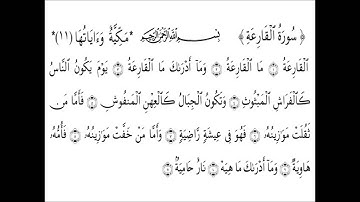 ﴿ سُورَةُ ٱلْقَارِعَةِ ﴾ بِسْمِ ٱللَّهِ ٱلرَّحْمَٰنِ ٱلرَّحِيمِ *مَكِّيَّةٌ وَءَايَاتُهَا (١١)*
ٱلْقَارِعَةُ ۝ مَا ٱلْقَارِعَةُ ۝ وَمَآ أَدْرَىٰكَ مَا ٱلْقَارِعَةُ ۝ يَوْمَ يَكُونُ ٱلنَّاسُ
كَٱلْفَرَاشِ ٱلْمَبْثُوثِ ۝ وَتَكُونُ ٱلْجِبَالُ كَٱلْعِهْنِ ٱلْمَنفُوشِ ۝ فَأَمَّا مَن
ثَقُلَتْ مَوَٰزِينُهُۥ ۝ فَهُوَ فِى عِيشَةٍ رَّاضِيَةٍ ۝ وَأَمَّا مَنْ خَفَّتْ مَوَٰزِينُهُۥ ۝ فَأُمُّهُۥ
هَاوِيَةٌ ۝ وَمَآ أَدْرَىٰكَ مَا هِيَهْ ۝ نَارٌ حَامِيَةٌۢ ۝